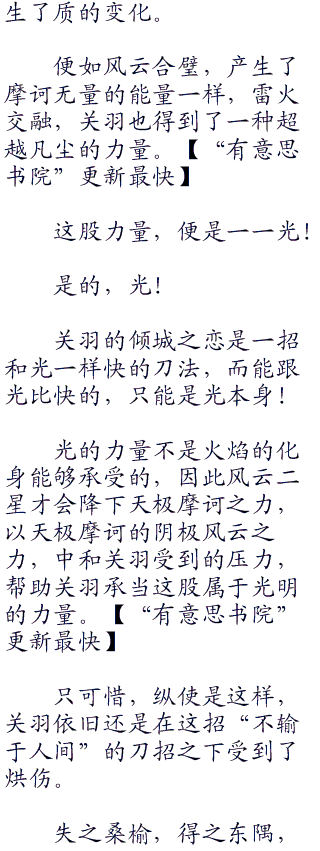 生了质的变化。
便如风云合璧，产生了
摩诃无量的能量一样，雷火
交融，关羽也得到了一种超
越凡尘的力量。【“有意思
书院”更新最快】
这股力量，便是一一光！
是的，光！
关羽的倾城之恋是一招
和光一样快的刀法，而能跟
光比快的，只能是光本身！
光的力量不是火焰的化
身能够承受的，因此风云二
星才会降下天极摩诃之力，
以天极摩诃的阴极风云之
力，中和关羽受到的压力，
帮助关羽承当这股属于光明
的力量。【“有意思书院”
更新最快】
只可惜，纵使是这样，
关羽依旧还是在这招“不输
于人间”的刀招之下受到了
烘伤。
失之桑榆，得之东隅，